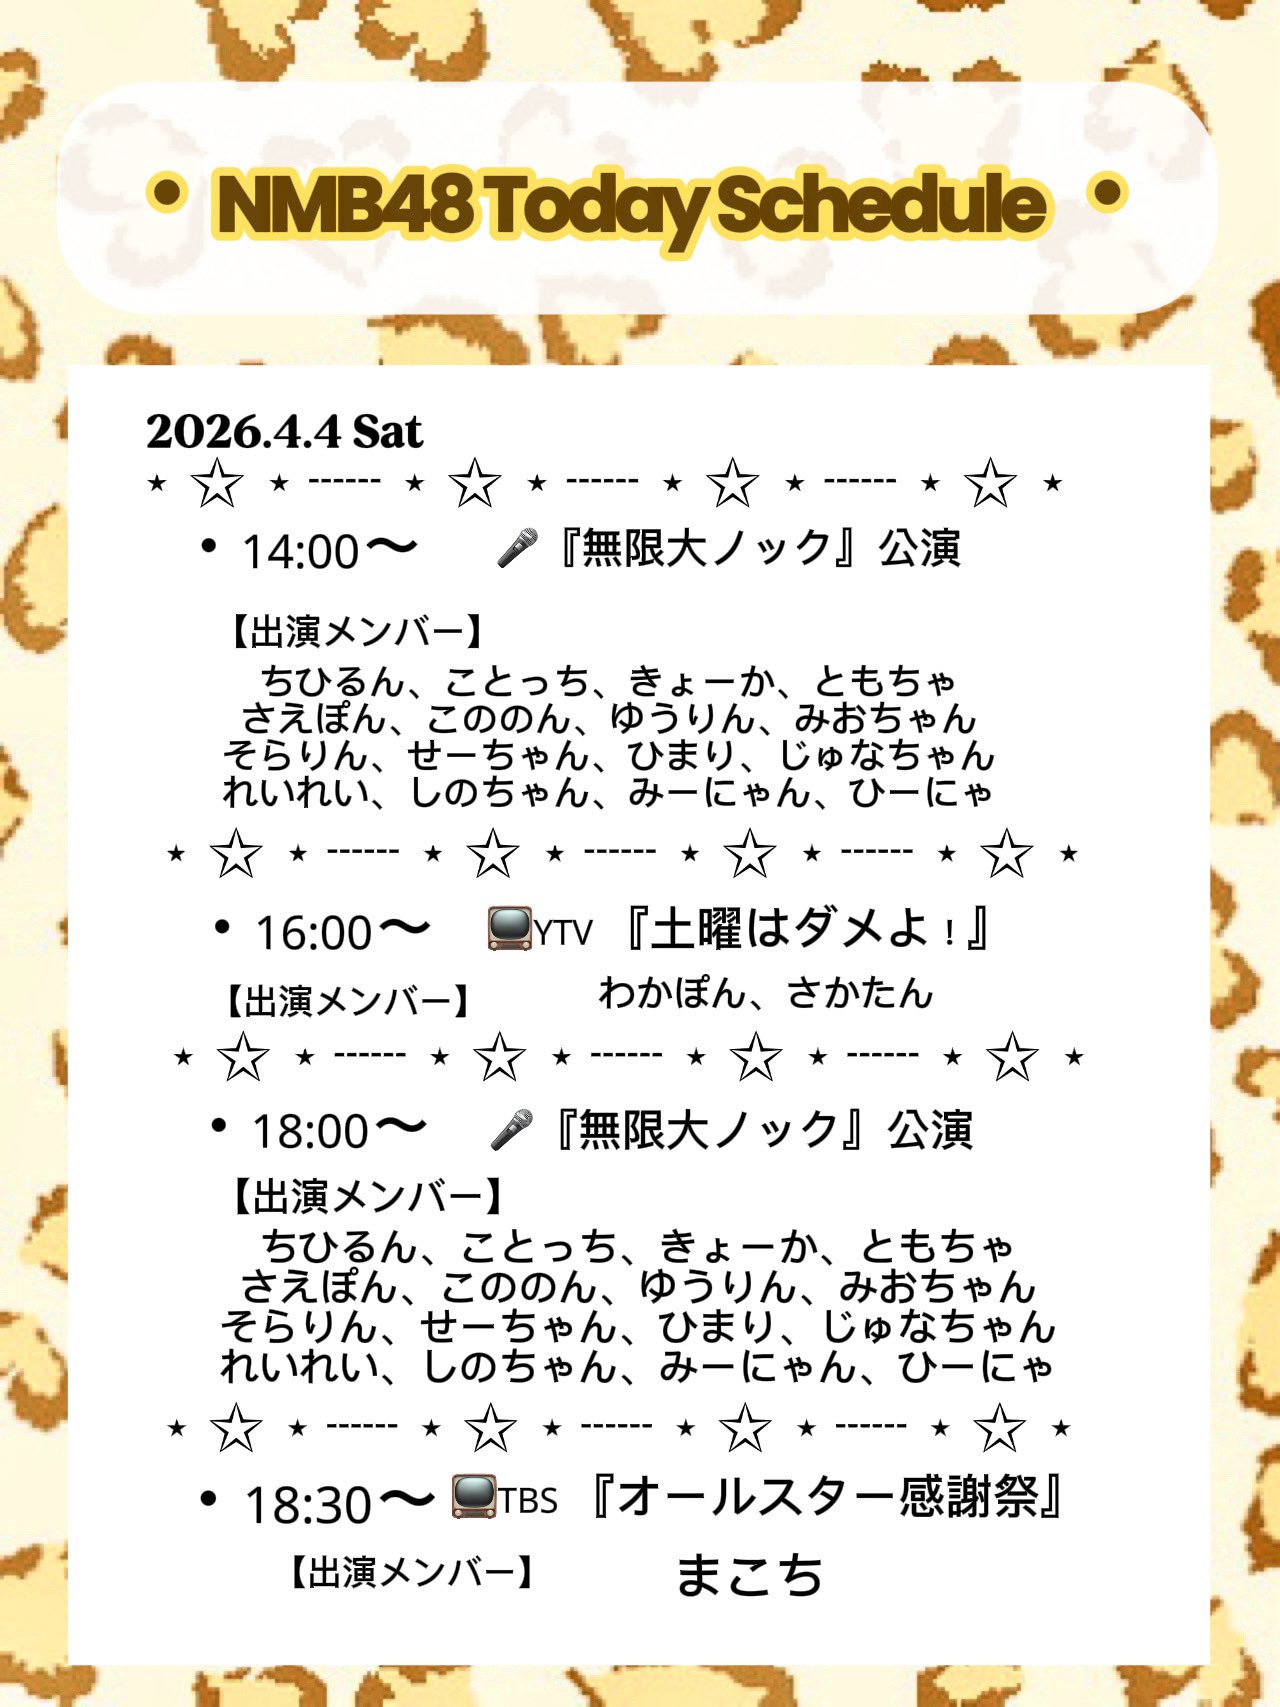 • NMB48 Today Schedule •
2026.4.4 Sat
⋆ ☆ ⋆ ------ ⋆ ☆ ⋆ ------ ⋆ ☆ ⋆ ------ ⋆ ☆ ⋆
• 14:00〜 🎤『無限大ノック』公演
【出演メンバー】
ちひるん、ことっち、きょーか、ともちゃ
さえぽん、こののん、ゆうりん、みおちゃん
そらりん、せーちゃん、ひまり、じゅなちゃん
れいれい、しのちゃん、みーにゃん、ひーにゃ
⋆ ☆ ⋆ ------ ⋆ ☆ ⋆ ------ ⋆ ☆ ⋆ ------ ⋆ ☆ ⋆
• 16:00〜 📺YTV『土曜はダメよ！』
【出演メンバー】 わかぽん、さかたん
⋆ ☆ ⋆ ------ ⋆ ☆ ⋆ ------ ⋆ ☆ ⋆ ------ ⋆ ☆ ⋆
• 18:00〜 🎤『無限大ノック』公演
【出演メンバー】
ちひるん、ことっち、きょーか、ともちゃ
さえぽん、こののん、ゆうりん、みおちゃん
そらりん、せーちゃん、ひまり、じゅなちゃん
れいれい、しのちゃん、みーにゃん、ひーにゃ
⋆ ☆ ⋆ ------ ⋆ ☆ ⋆ ------ ⋆ ☆ ⋆ ------ ⋆ ☆ ⋆
• 18:30〜 📺TBS『オールスター感謝祭』
【出演メンバー】 まこち